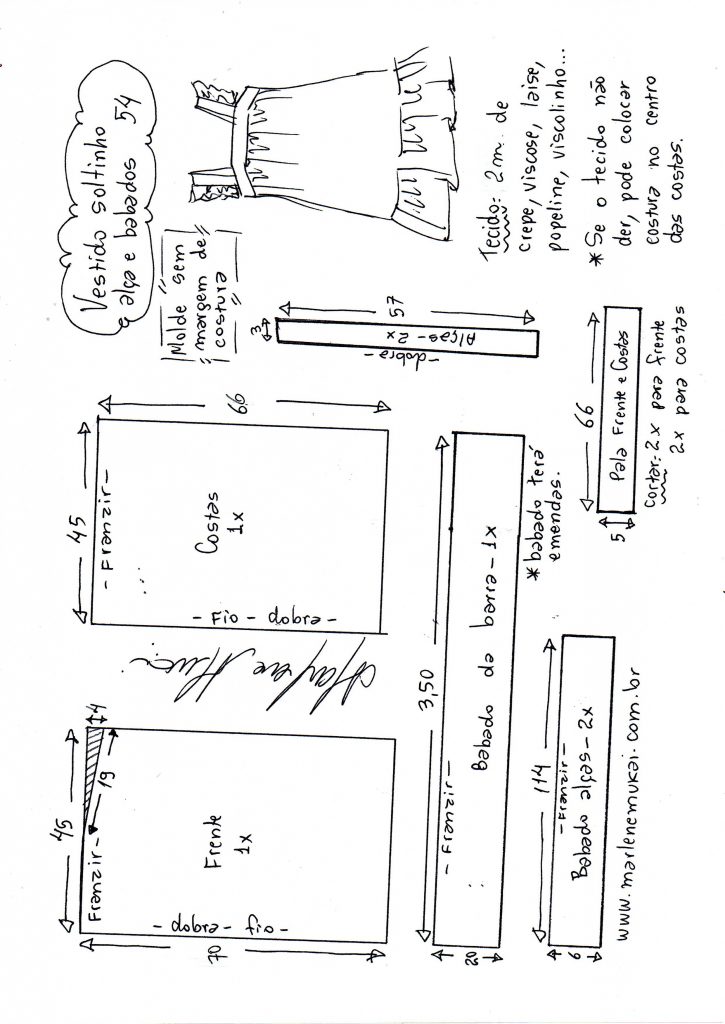 Vestido soltinho
alça e babados 54
"Molde sem
margem de
costura"
Tecido: 2m. de
crepe, viscose, laise,
popeline, viscolinho...
*Se o tecido não
der, pode colocar
costura no centro
das costas.
45
- Franzir -
Costas
1x
- Fio - dobra -
66
3
57
Alças - 2x
- dobra -
45
Franzir -
4
19
Frente
1x
- fio - dobra -
70
3,50
- Franzir -
Babado da barra - 1x
20
*babado terá
emendas.
66
Pala Frente e Costas
5
cortar: 2x para frente
2x para costas
114
- Franzir -
Babado alças - 2x
6
www.marlenemukai.com.br
Marlene Mukai